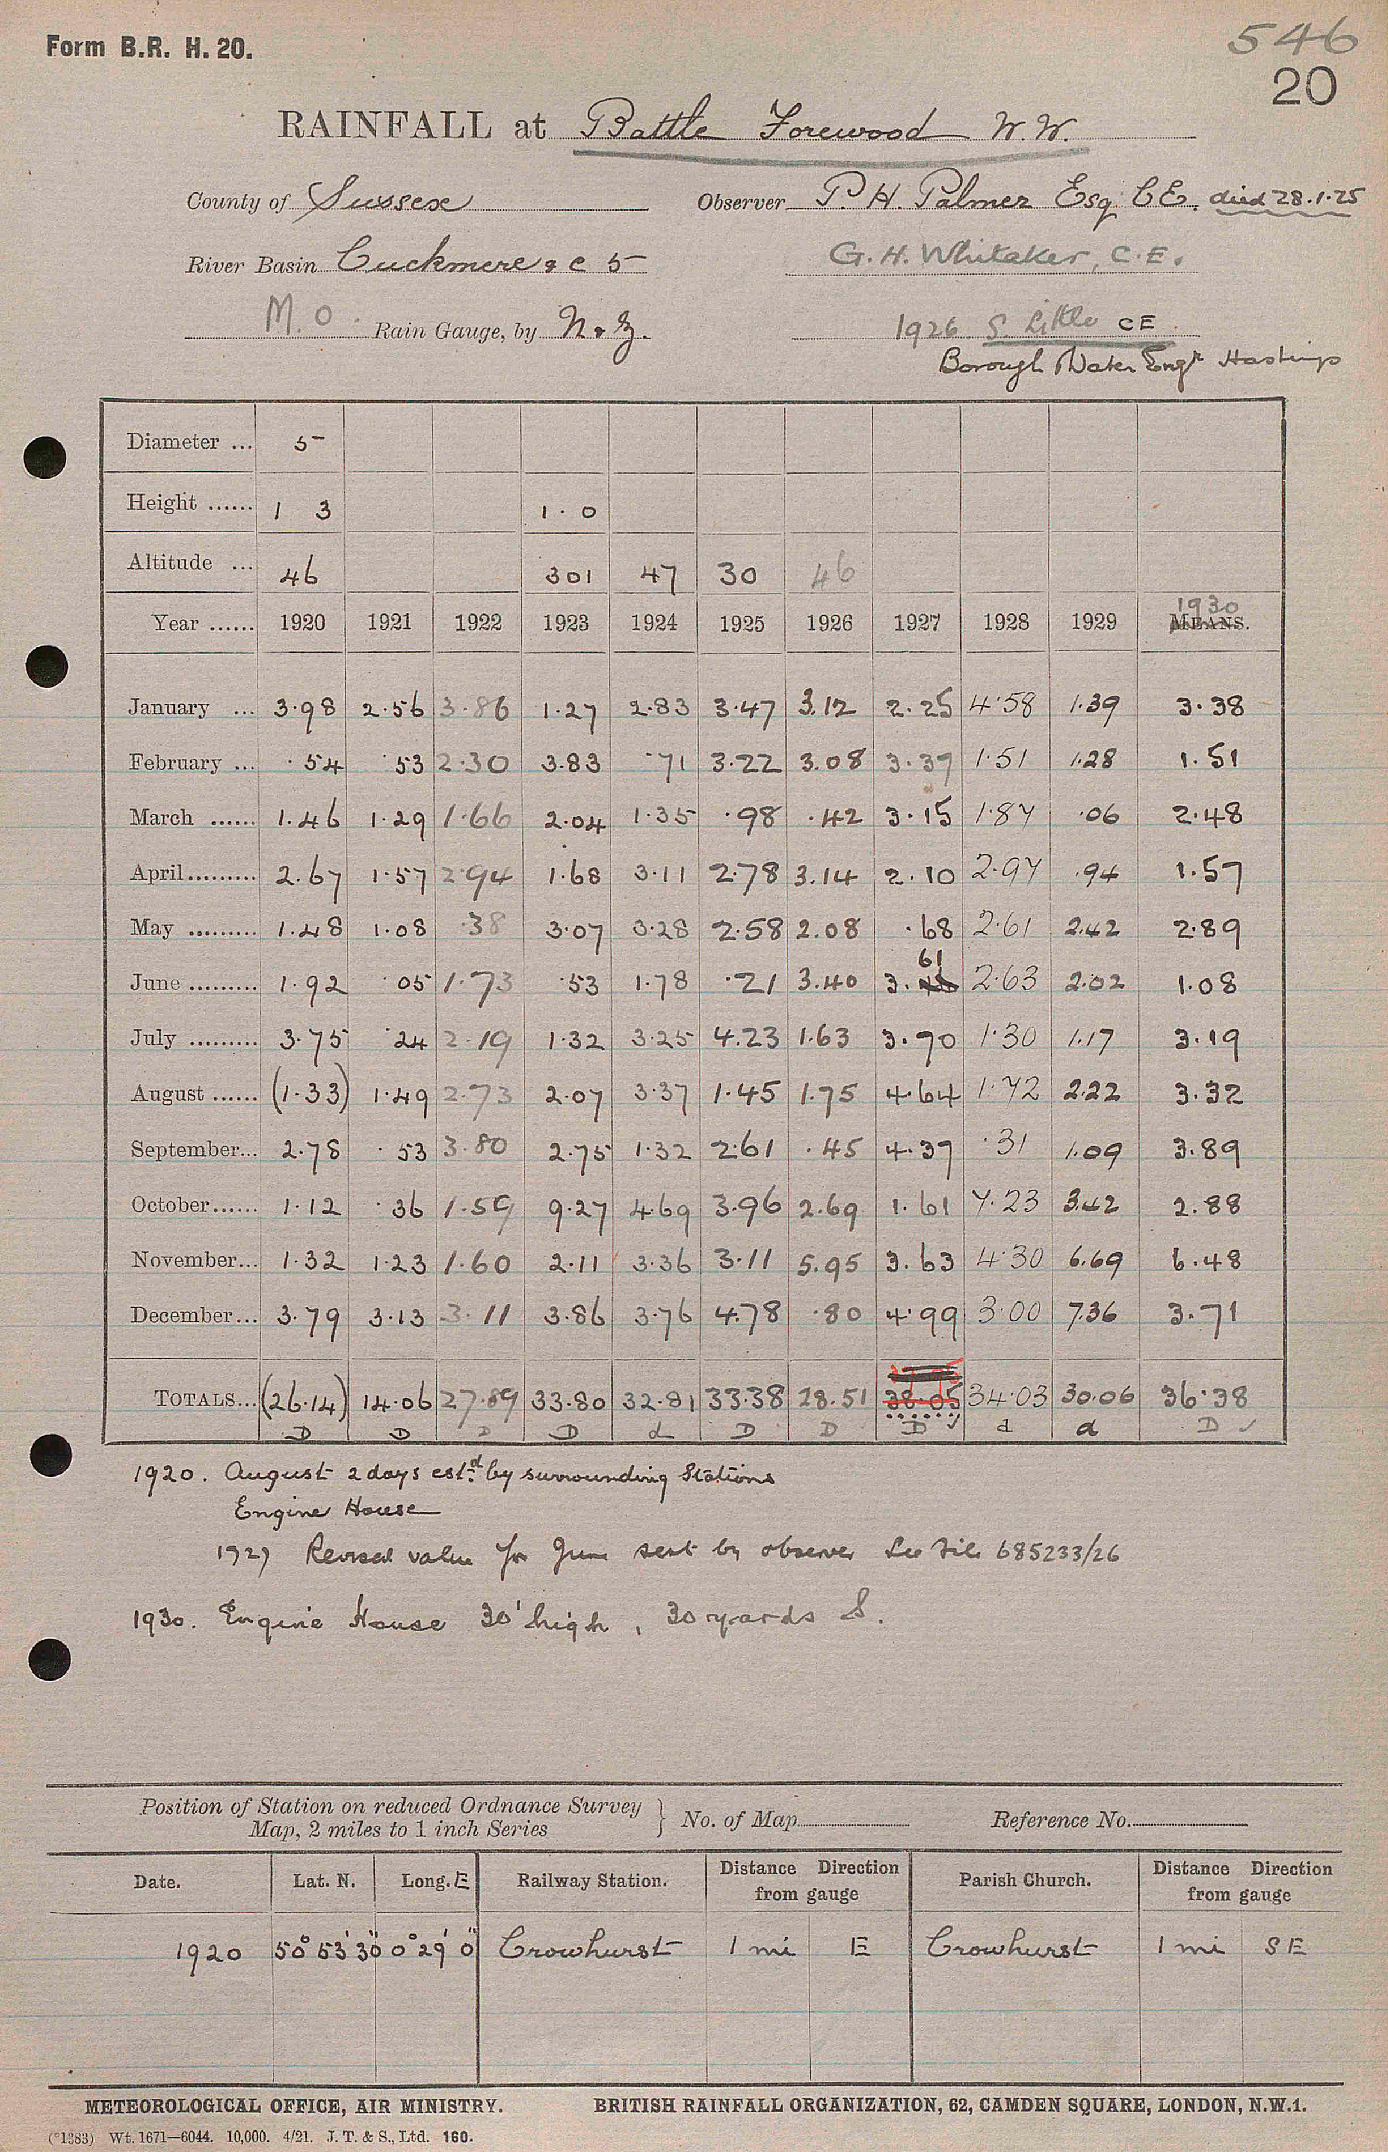 Form B.R. H. 20.
546
20
RAINFALL at Battle Forewood W.W.
County of Sussex Observer P. H. Palmer Esq C.E. died 28.1.25
River Basin Cuckmere & c 5 G. H. Whitaker, C.E.
M.O. Rain Gauge, by N & Z. 1926 S. Little CE
Borough Water Engr Hastings
Diameter ... 5
Height ...... 1 3 1.0
Altitude ... 46 301 47 30 46
Year ...... 1920 1921 1922 1923 1924 1925 1926 1927 1928 1929 1930 MEANS.
January ... 3.98 2.56 3.86 1.27 2.83 3.47 3.12 2.25 4.58 1.39 3.38
February ... .54 .53 2.30 3.83 .71 3.22 3.08 3.37 1.51 1.28 1.51
March ...... 1.46 1.29 1.66 2.04 1.35 .98 .42 3.15 1.87 .06 2.48
April......... 2.67 1.57 2.94 1.68 3.11 2.78 3.14 2.10 2.97 .94 1.57
May ......... 1.48 1.08 .38 3.07 3.28 2.58 2.08 .68 2.61 2.42 2.89
June ......... 1.92 .05 1.73 .53 1.78 .21 3.40 3.61 2.63 2.02 1.08
July ......... 3.75 .24 2.19 1.32 3.25 4.23 1.63 3.70 1.30 1.17 3.19
August ...... (1.33) 1.49 2.73 2.07 3.37 1.45 1.75 4.64 1.72 2.22 3.32
September... 2.78 .53 3.80 2.75 1.32 2.61 .45 4.37 .31 1.09 3.89
October...... 1.12 .36 1.59 9.27 4.69 3.96 2.69 1.61 7.23 3.42 2.88
November... 1.32 1.23 1.60 2.11 3.36 3.11 5.95 3.63 4.30 6.69 6.48
December... 3.79 3.13 3.11 3.86 3.76 4.78 .80 4.99 3.00 7.36 3.71
TOTALS... (26.14) 14.06 27.89 33.80 32.81 33.38 28.51 38.05 34.03 30.06 36.38
D D D D d D D D ✓ d d D ✓
1920. August 2 days estd by surrounding Stations
Engine House
1927 Revised value for June sent by observer See File 685233/26
1930. Engine House 30' high, 30 yards S.
Position of Station on reduced Ordnance Survey Map, 2 miles to 1 inch Series } No. of Map Reference No.
Date. Lat. N. Long. E Railway Station. Distance Direction from gauge Parish Church. Distance Direction from gauge
1920 50° 53' 30" 0° 29' 0" Crowhurst 1 mi E Crowhurst 1 mi SE
METEOROLOGICAL OFFICE, AIR MINISTRY. BRITISH RAINFALL ORGANIZATION, 62, CAMDEN SQUARE, LONDON, N.W.1.
(*1383) Wt. 1671—6044. 10,000. 4/21. J. T. & S., Ltd. 160.